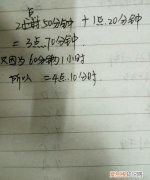 2时50分钟 + 1点20分钟
= 3点70分钟.
又因为60分钟为1小时
所以 = 4点10分时.